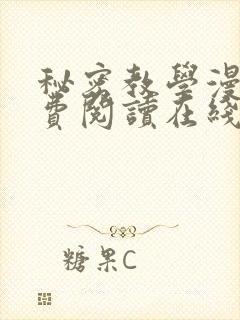 秘密教學漫
費閱讀在綫
糖果C